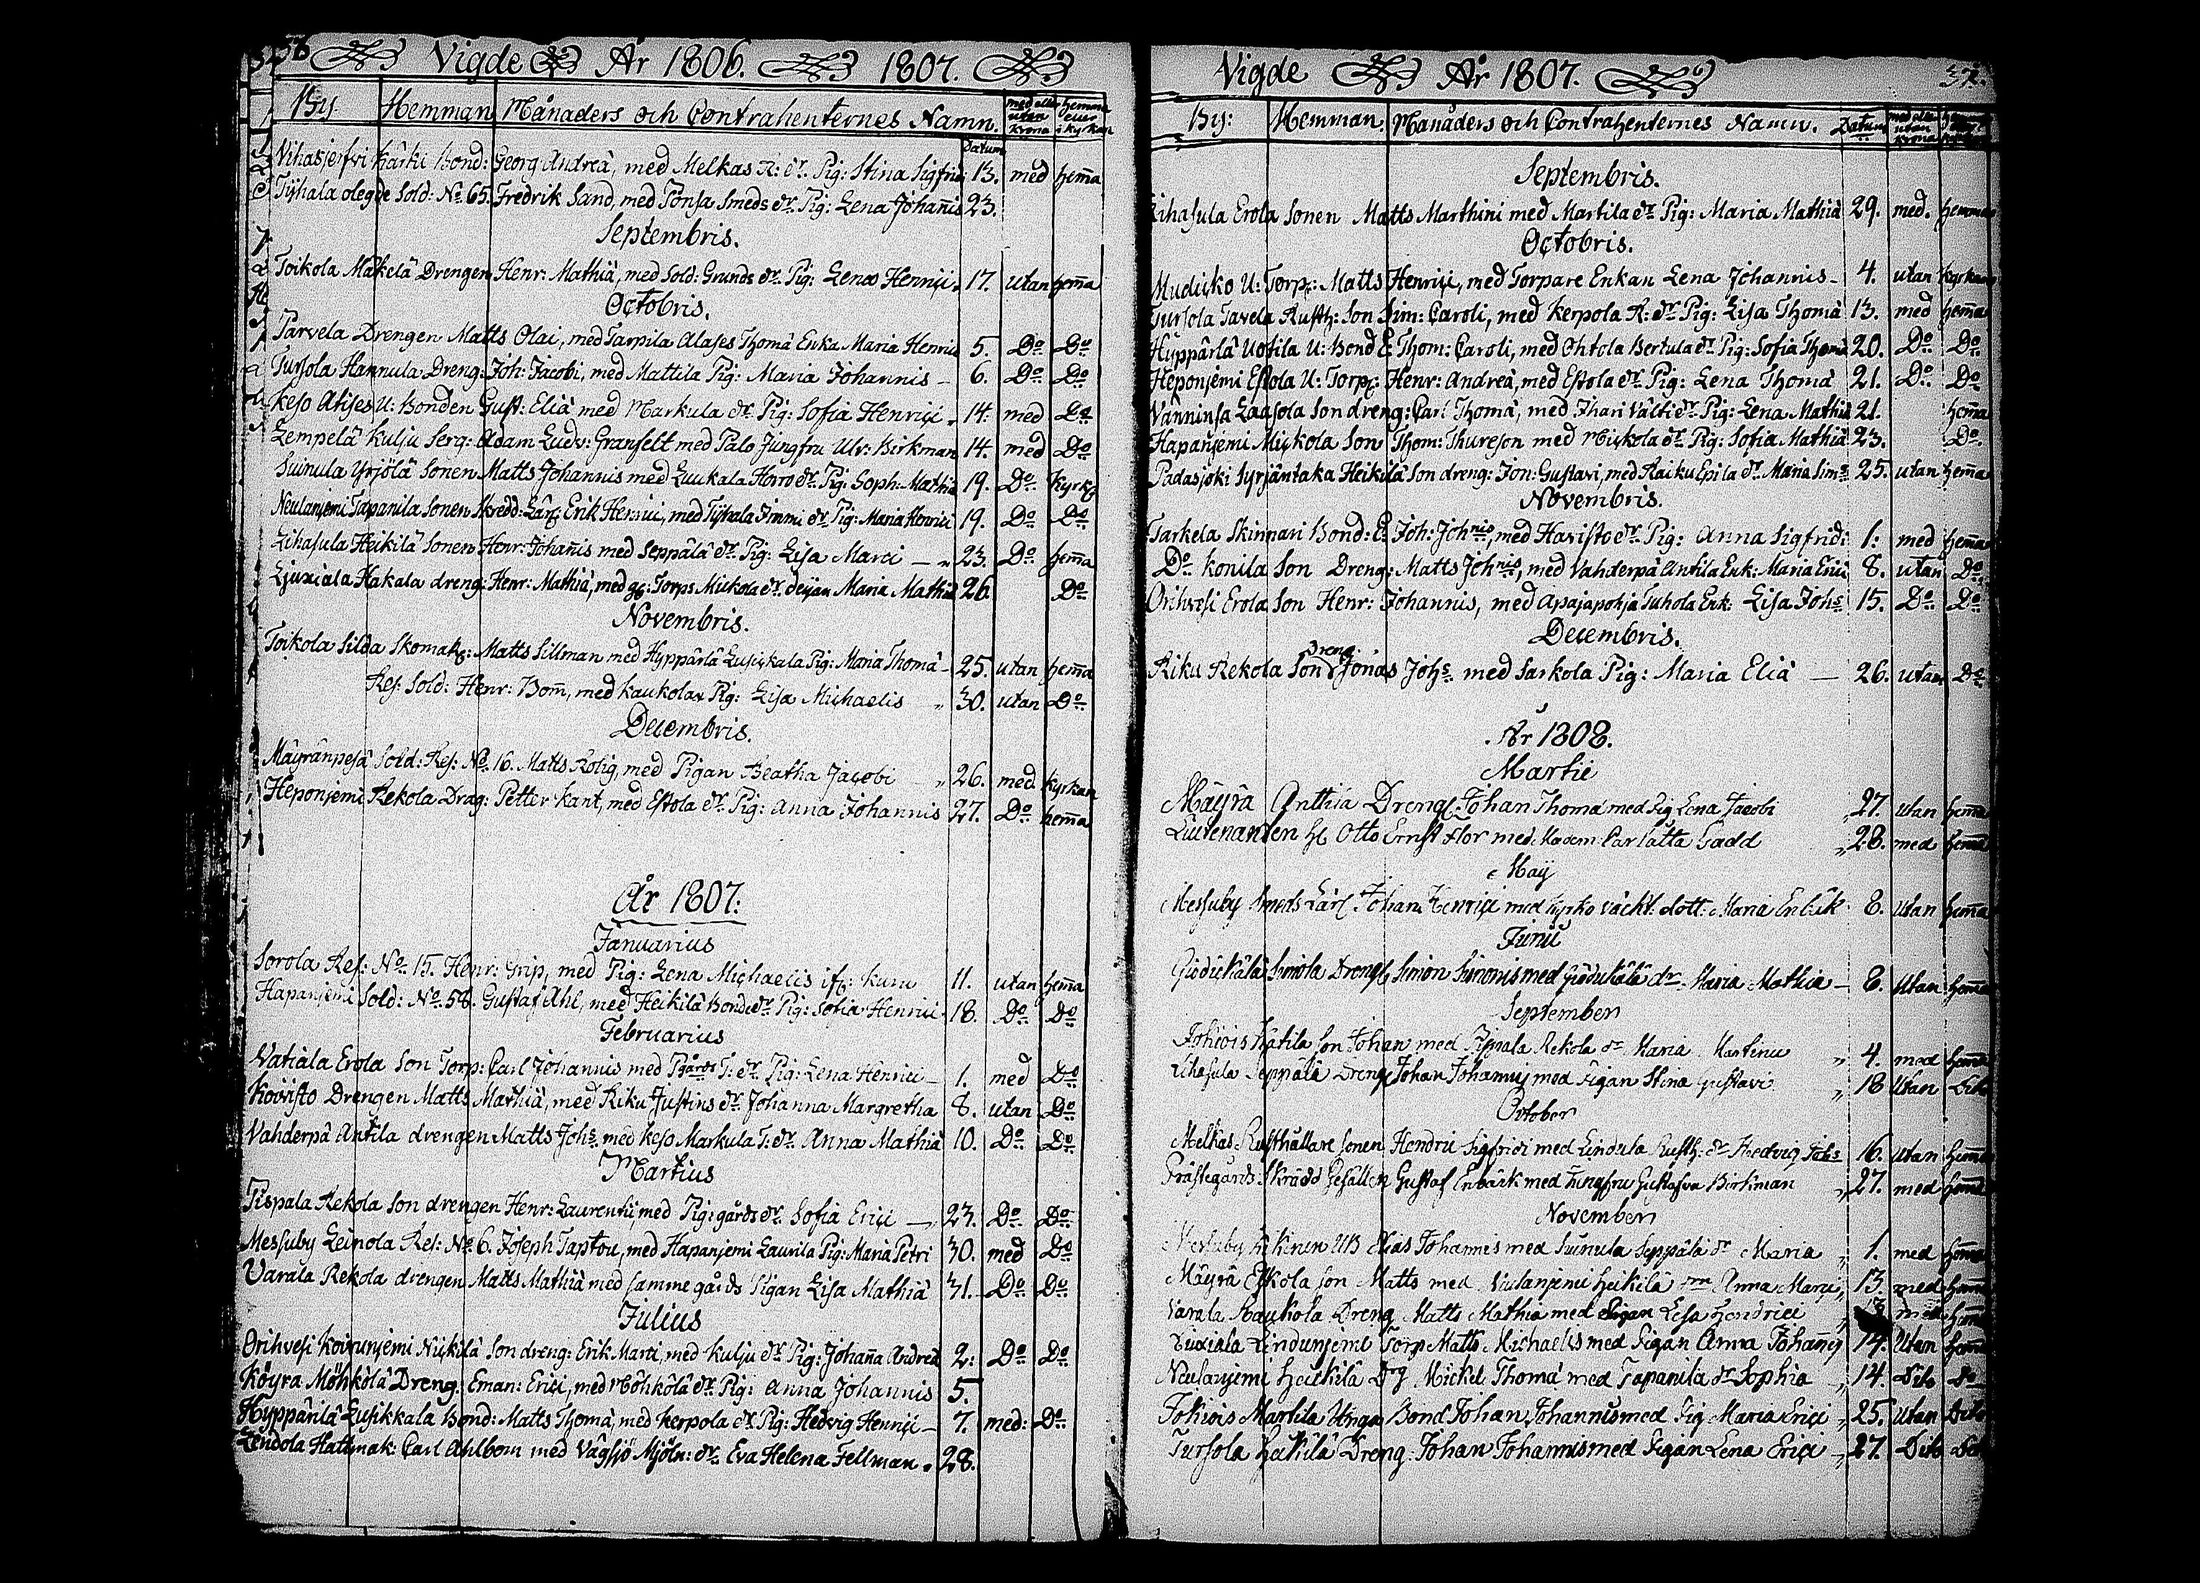 36 Vigde År 1806. 1807.
By Hemman Månaders och Contrahenternes Namn. med eller utan krona hemma eller i kyrkan
Datum
Vihasjerfvi Kärki Bond: Georg Andreä, med Melkas R: dr. Pig: Stina Sigfrid 13. med hem̄a
Tijhala olegde Sold: No. 65. Fredrik Sand, med Pönsa Smeds dr. Pig: Lena Johan̄is 23.
Septembris.
Toikola Mäkelä Drengen Henr: Mathiä, med Sold: Grunds dr. Pig: Lena Henrici. 17. utan hem̄a
Octobris.
Parvela Drengen Matts Olai, med Tarpila Alases Thomä Enka Maria Henrici 5. Do. Do.
Tursola Hannula Dreng: Joh: Jacobi, med Mattila Pig: Maria Johannis 6. Do. Do.
Keso Atises U: Bonden Gust: Eliä med Markula dr. Pig: Sofia Henrici. 14. med Do.
Lempelä Kulju Serg: Adam Ludv: Granfelt med Palo Jungfru Ulr: Birkman 14. med Do.
Suinula Yrjölä Sonen Matts Johannis med Luukala Horro dr. Pig: Soph: Mathiä 19. Do. Kyrk
Neulanjemi Tapanila Sonen Skredd: Lärl: Erik Henrici, med Tijhala Jimmi dr. Pig: Maria Henrici 19. Do. Do.
Lihasula Heikilä Sonen Henr: Johan̄is med Seppälä dr. Pig: Lisa Marci 23. Do. hem̄a
Ljuxiala Hakala dreng: Henr: Mathiä, med Torps Mickola dr. Maria Mathiä 26 Do.
Novembris.
Toikola Silda Skomak: Matts Sillman med Hyppärlä Lusickala Pig: Maria Thomä 25. utan hem̄a
Res: Sold: Henr: Bom̄, med Kaukola Pig: Lisa Michaelis 30. utan Do.
Decembris.
Mäyränpesä Sold: Res: No. 16. Matts Rolig, med Pigan Beatha Jacobi 26. med. kyrkan
Heponjemi Rekola Drag: Petter Kant, med Estola dr. Pig: Anna Johannis 27. Do. hem̄a
År 1807:
Januarius
Sorola Res: No. 15. Henr: Grip, med Pig: Lena Michaelis if: Kuru 11. utan hem̄a
Hapanjemi Sold: No. 58. Gustaf Ahl, med Heikilä Bonde dr. Pig: Sofia Henrici 18. Do. Do.
Februarius
Vatiala Erola Son Torp: Carl Johannis med Pgårds T: dr. Pig: Lena Henrici 1. med Do.
Koivisto Drengen Matts Mathiä, med Riku Justins dr. Johanna Margretha 8. utan Do.
Vahderpä Antila drengen Matts Johs. med Keso Markula T: dr. Anna Mathiä 10. Do. Do.
Martius
Pispala Rekola Son drengen Henr: Laurentii, med Pig: gårds dr. Sofia Erici 23. Do. Do.
Messuby Leinola Res: No. 6. Joseph Taptou, med Hapanjemi Laurila Pig: Maria Petri 30. med Do.
Varala Rekola drengen Matts Mathiä med samme gårds Pigan Lisa Mathiä 31. Do. Do.
Julius
Orihvesi Koivunjemi Nickilä Son dreng: Erik Marci, med Kulju dr. Pig: Johan̄a Andreä 2: Do. Do.
Köyra Möhkölä Dreng. Eman: Erici, med Möhkölä dr. Pig: Anna Johannis 5.
Hyppärilä Lusikkala Bond: Matts Thomä, med Kerpola dr. Pig: Hedvig Henrici 7. med: Do.
Lendola Hattmak: Carl Ahlbom med Vågsjö Mjöln: dr. Eva Helena Fellman. 28.
Vigde År 1807. 37.
By: Hemman. Månaders och Contrahenternes Namn. Datum med eller utan krona
Septembris.
Lihasula Erola Sonen Matts Marthini med Martila dr. Pig: Maria Mathiä 29. med. hemma
Octobris.
Mudicko U: Torp: Matts Henrici, med Torpare Enkan Lena Johannis 4. utan kyrkan
Tursola Tavela Rusth: Son Sim: Caroli, med Kerpola R: dr. Pig: Lisa Thomä 13. med hem̄a
Hyppärlä Uotila U: Bond E: Thom: Caroli, med Ohtola Bertula dr. Pig: Sofia Thomä 20. Do. Do
Heponjemi Estola U: Torp: Henr: Andreä, med Estola dr. Pig: Lena Thomä 21. Do. Do
Vänninsa Laasola Son dreng: Carl Thomä, med Ihari Välti dr. Pig: Lena Mathiä 21. hem̄a
Hapanjemi Mickola Son Thom: Thureson med Mickola dr. Pig: Sofia Mathiä 23. Do.
Padasjoki Syrjäntaka Heikilä Son dreng: Jon: Gustavi, med Raiku Epila dr. Maria Sims. 25. utan hem̄a
Novembris.
Tarkela Skinnari Bond: E: Joh: Johnis, med Haristo dr. Pig: Anna Sigfridi 1: med hem̄a
Do. Konila Son Dreng: Matts Johnis, med Vahderpä Antila Enk: Maria Erici 8. utan Do.
Orihvesi Erola Son Henr: Johannis, med Apajapohja Tuhola Enk: Lisa Johs: 15. Do. Do.
Decembris.
Riku Rekola Son Dreng: Jonas Johs. med Sarkola Pig: Maria Eliä 26. utan Do.
År 1808.
Martie
Mäyrä Anthia Dreng Johan Thomä med Pig Lena Jacobi 27. utan hem̄a
Lieutenanten H Otto Ernst Flor med Madem: Carlotta Gadd 28. med hem̄a
May
Messuby Smeds Lärl Johan Henrici med Kyrko väckt: dott: Maria Enbäk 8. utan hem̄a
Junii
Simola Dreng Simon Simonis med dr Maria Mathiä 6. utan hem̄a
September
Johiois Katila Son Johan med Pispala Rekola dr Maria Martenu 4. med hem̄a
Lihasula Seppälä Dreng Johan Johannis med Pigan Stina Gustavi 18 utan Dito
October
Melkas Rusthållare sonen Hendric Sigfridi med Lindula Rusth: dr Hedvig Johs 16. utan hem̄a
Prästegårds Skrädd Gesällen Gustaf Enbäck med Jungfru Gustafva Birkman 27. med hem̄a
November
Messuby UB Elias Johannis med Suinula Seppälä dr Maria 1. med hem̄a
Mäyrä Eskola Son Matts med Neulanjemi Heikilä Anna Marci 13. med hem̄a
Varala Kaukola Dreng Matts Mathiä med Pigan Lesa Hendrici med hem̄a
Liuxiala Lindunjemi Torp Matts Michaelis med Pigan Anna Johan̄is 14. utan hem̄a
Neulanjemi Heikilä Drg Mickel Thomä med Tapanila dr Sophia 14. Dito Do
Jokiois Martila Unga Bond Johan Johannis med Pig Maria Erici 25. utan Dito
Tursola Heikilä Dreng Johan Johannis med Pigan Lena Erici 27. Dito Dito